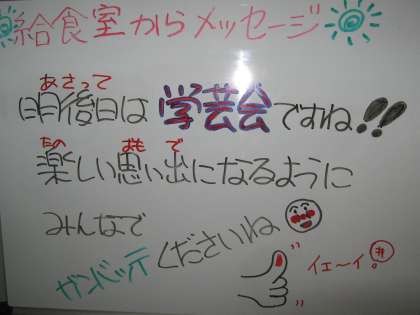 給食室からメッセージ
あさって
明後日は学芸会ですね!!
たの おも で
楽しい思い出になるように
みんなで
ガンバッテくださいね
イェ〜イ。